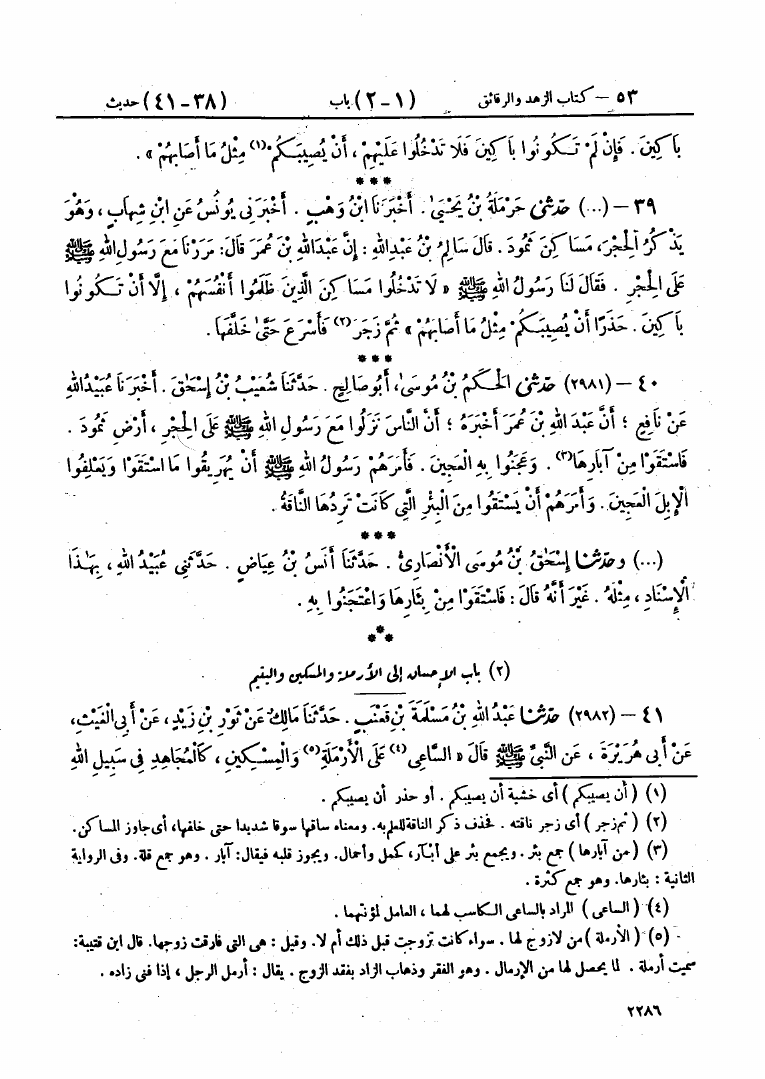 ٥٣ – كتاب الزهد والرقائق (١-٢) باب (٣٨-٤١) حديث
بَاكِينَ . فَإِنْ لَمْ تَكُونُوا بَاكِينَ فَلَا تَدْخُلُوا عَلَيْهِمْ ، أَنْ يُصِيبَكُمْ(١) مِثْلُ مَا أَصَابَهُمْ » .
***
٣٩ – (...) حَدَّثَنِي حَرْمَلَةُ بْنُ يَحْيَىٰ . أَخْبَرَنَا ابْنُ وَهْبٍ . أَخْبَرَنِي يُونُسُ عَنِ ابْنِ شِهَابٍ ، وَهُوَ
يَذْكُرُ الْحِجْرَ، مَسَاكِنَ ثَمُودَ . قَالَ سَالِمُ بْنُ عَبْدِ اللهِ : إِنَّ عَبْدَ اللهِ بْنَ عُمَرَ قَالَ: مَرَرْنَا مَعَ رَسُولِ اللهِ ﷺ
عَلَى الْحِجْرِ . فَقَالَ لَنَا رَسُولُ اللهِ ﷺ « لَا تَدْخُلُوا مَسَاكِنَ الَّذِينَ ظَلَمُوا أَنْفُسَهُمْ ، إِلَّا أَنْ تَكُونُوا
بَاكِينَ . حَذَرًا أَنْ يُصِيبَكُمْ مِثْلُ مَا أَصَابَهُمْ » ثُمَّ زَجَرَ(٢) فَأَسْرَعَ حَتَّىٰ خَلَّفَهَا .
***
٤٠ – (٢٩٨١) حَدَّثَنِي الْحَكَمُ بْنُ مُوسَىٰ، أَبُو صَالِحٍ . حَدَّثَنَا شُعَيْبُ بْنُ إِسْحَٰقَ . أَخْبَرَنَا عُبَيْدُ اللهِ
عَنْ نَافِعٍ ؛ أَنَّ عَبْدَ اللهِ بْنَ عُمَرَ أَخْبَرَهُ ؛ أَنَّ النَّاسَ نَزَلُوا مَعَ رَسُولِ اللهِ ﷺ عَلَى الْحِجْرِ ، أَرْضِ ثَمُودَ .
فَاسْتَقَوْا مِنْ آبَارِهَا(٣). وَعَجَنُوا بِهِ الْعَجِينَ . فَأَمَرَهُمْ رَسُولُ اللهِ ﷺ أَنْ يُهَرِيقُوا مَا اسْتَقَوْا وَيَعْلِفُوا
الْإِبِلَ الْعَجِينَ . وَأَمَرَهُمْ أَنْ يَسْتَقُوا مِنَ الْبِئْرِ الَّتِي كَانَتْ تَرِدُهَا النَّاقَةُ .
***
(...) وَحَدَّثَنَا إِسْحَٰقُ بْنُ مُوسَى الْأَنْصَارِيُّ . حَدَّثَنَا أَنَسُ بْنُ عِيَاضٍ . حَدَّثَنِي عُبَيْدُ اللهِ ، بِهَٰذَا
الْإِسْنَادِ ، مِثْلَهُ . غَيْرَ أَنَّهُ قَالَ : فَاسْتَقَوْا مِنْ بِئَارِهَا وَاعْتَجَنُوا بِهِ .
***
(٢) باب الإحسان إلى الأرملة والمسكين واليتيم
٤١ – (٢٩٨٢) حَدَّثَنَا عَبْدُ اللهِ بْنُ مَسْلَمَةَ بْنِ قَعْنَبٍ . حَدَّثَنَا مَالِكٌ عَنْ ثَوْرِ بْنِ زَيْدٍ، عَنْ أَبِي الْغَيْثِ،
عَنْ أَبِي هُرَيْرَةَ ، عَنِ النَّبِيِّ ﷺ قَالَ « السَّاعِي(٤) عَلَى الْأَرْمَلَةِ(٥) وَالْمِسْكِينِ ، كَالْمُجَاهِدِ فِي سَبِيلِ اللهِ
(١) ( أن يصيبكم ) أى خشية أن يصيبكم . أو حذر أن يصيبكم .
(٢) ( ثم زجر ) أى زجر ناقته . فحذف ذكر الناقة للعلم به. ومعناه ساقها سوقا شديدا حتى خلفها، أى جاوز المساكن.
(٣) ( من آبارها ) جمع بئر . ويجمع بئر على أبآر، كحمل وأحمال. ويجوز قلبه فيقال: آبار . وهو جمع قلة. وفى الرواية
الثانية : بئارها. وهو جمع كثرة .
(٤) ( الساعى ) المراد بالساعى الكاسب لهما ، العامل لمؤنتهما .
(٥) ( الأرملة ) من لا زوج لها . سواء كانت تزوجت قبل ذلك أم لا. وقيل : هى التى فارقت زوجها. قال ابن قتيبة:
سميت أرملة . لما يحصل لها من الإرمال . وهو الفقر وذهاب الزاد بفقد الزوج . يقال : أرمل الرجل ، إذا فنى زاده .
٢٢٨٦